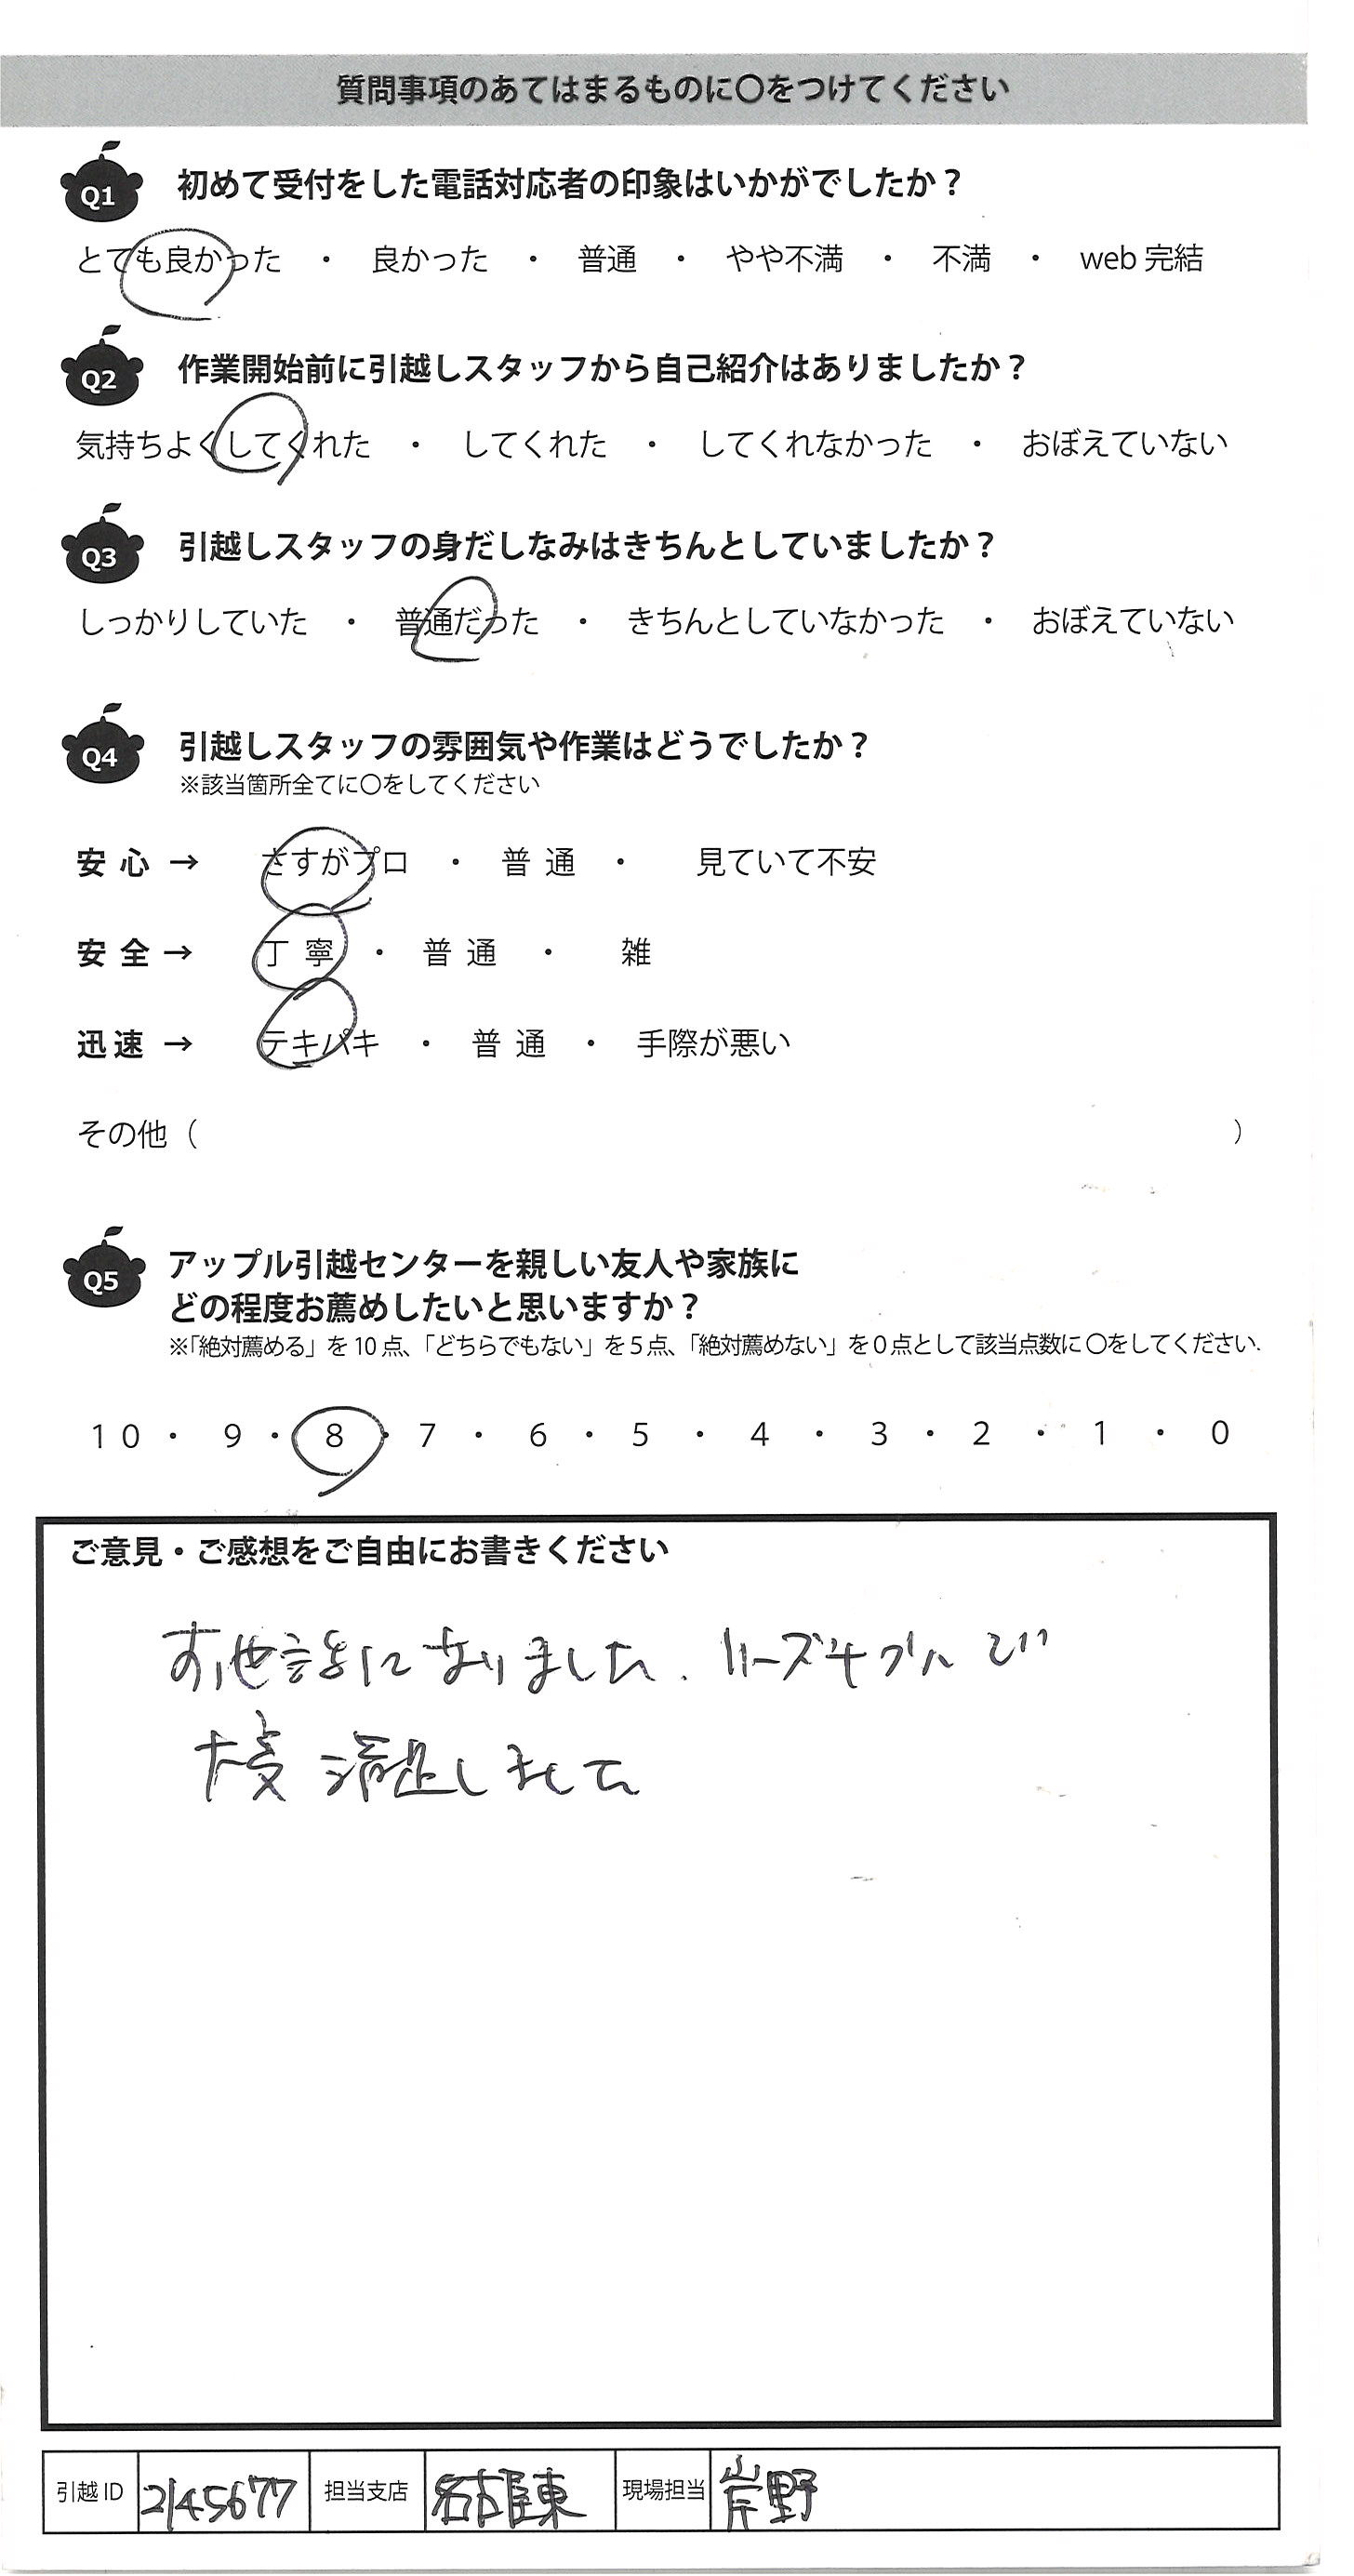 質問事項のあてはまるものに○をつけてください
Q1 初めて受付をした電話対応者の印象はいかがでしたか？
とても良かった ・ 良かった ・ 普通 ・ やや不満 ・ 不満 ・ web 完結
Q2 作業開始前に引越しスタッフから自己紹介はありましたか？
気持ちよくしてくれた ・ してくれた ・ してくれなかった ・ おぼえていない
Q3 引越しスタッフの身だしなみはきちんとしていましたか？
しっかりしていた ・ 普通だった ・ きちんとしていなかった ・ おぼえていない
Q4 引越しスタッフの雰囲気や作業はどうでしたか？
※該当箇所全てに○をしてください
安心 → さすがプロ ・ 普通 ・ 見ていて不安
安全 → 丁寧 ・ 普通 ・ 雑
迅速 → テキパキ ・ 普通 ・ 手際が悪い
その他（ ）
Q5 アップル引越センターを親しい友人や家族に
どの程度お薦めしたいと思いますか？
※「絶対薦める」を 10 点、「どちらでもない」を 5 点、「絶対薦めない」を 0 点として該当点数に ○をしてください.
10 ・ 9 ・ 8 ・ 7 ・ 6 ・ 5 ・ 4 ・ 3 ・ 2 ・ 1 ・ 0
ご意見・ご感想をご自由にお書きください
お世話になりました.
大変満足しました
引越 ID 2145677 担当支店 名古屋東 現場担当 岸野